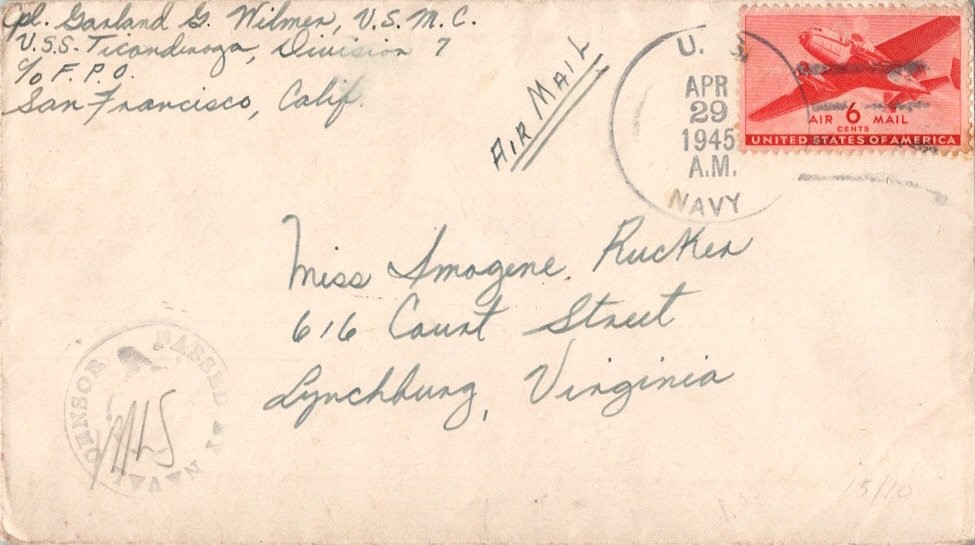 Cpl. Garland G. Wilmer, U.S.M.C.
U.S.S. Ticonderoga, Division 7
c/o F.P.O.
San Francisco, Calif.
AIR MAIL
U. S.
APR
29
1945
A.M.
NAVY
6
AIR MAIL
CENTS
UNITED STATES OF AMERICA
Miss Imogene Rucker
616 Court Street
Lynchburg, Virginia
PASSED BY NAVAL CENSOR
15/10